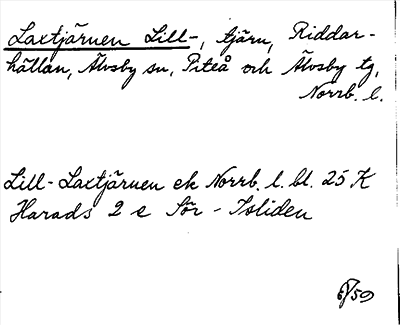 Laxtjärnen Lill-, tjärn, Riddar-
hällan, Älvsby sn, Piteå och Älvsby tg,
Norrb. l.
Lill-Laxtjärnen ek Norrb. l. bl. 25 K
Harads 2 e Sör-Isliden
59